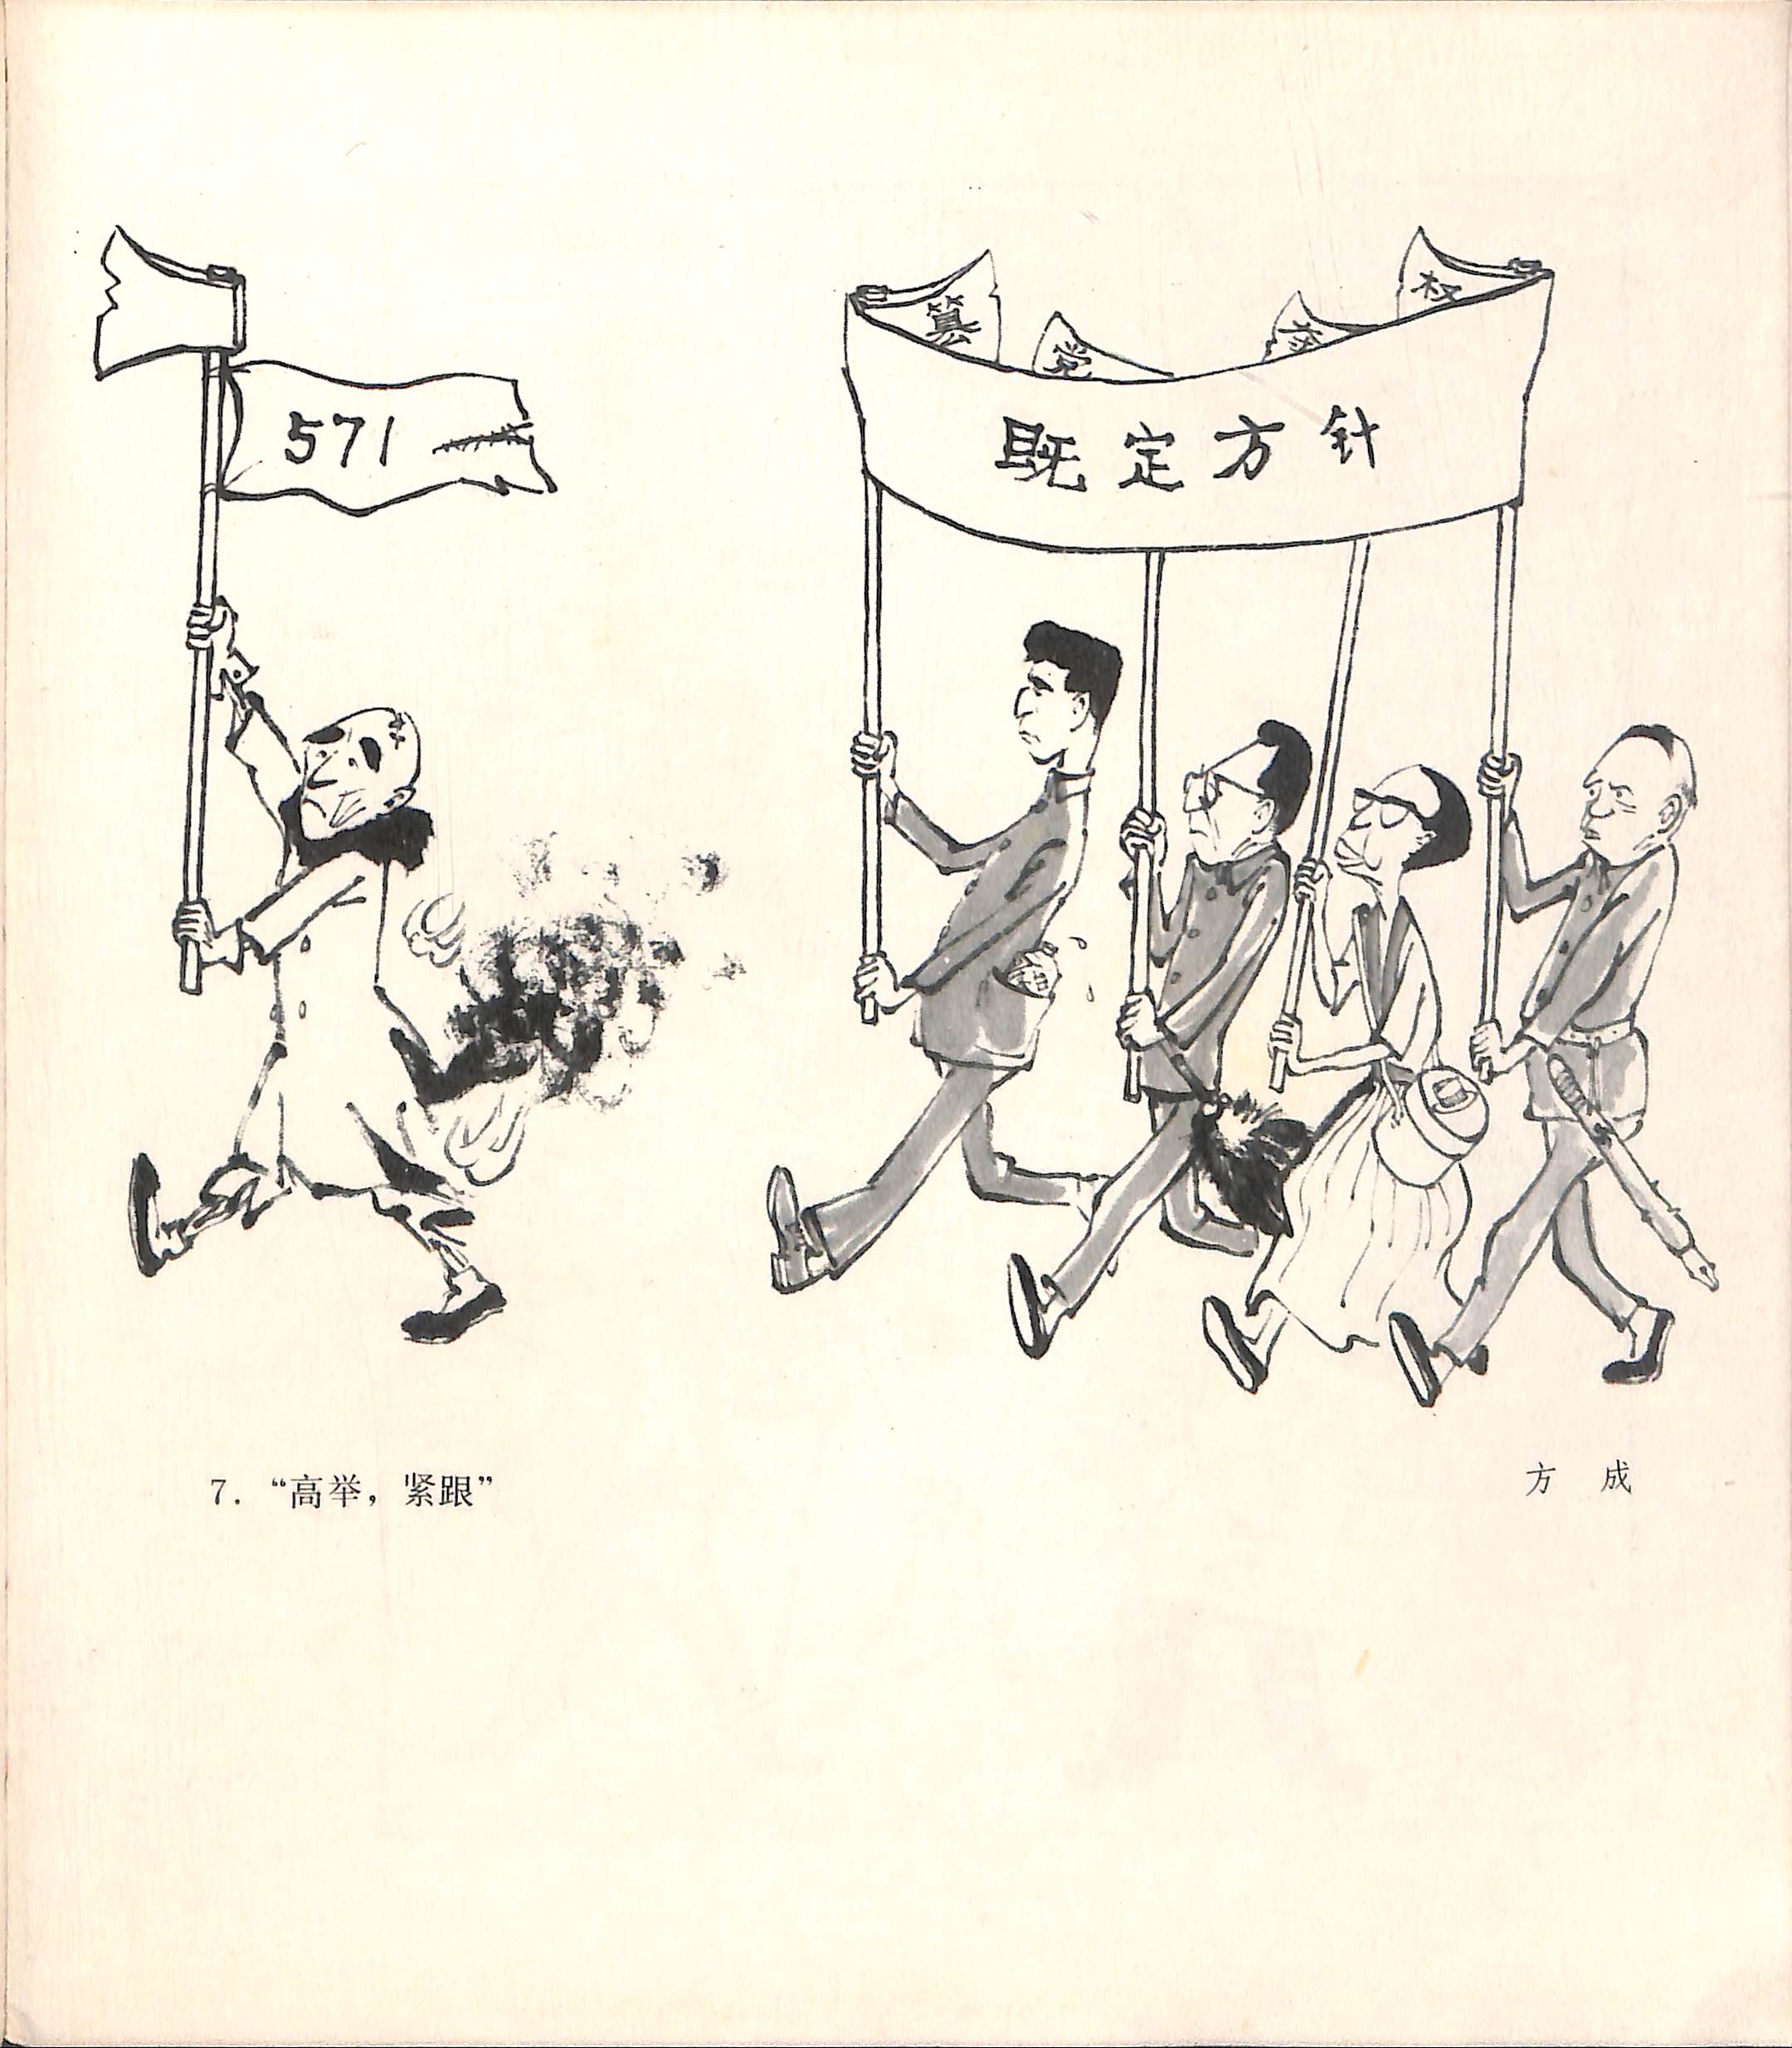 571
篡
党
夺
权
既定方针
7. “高举，紧跟”
方 成